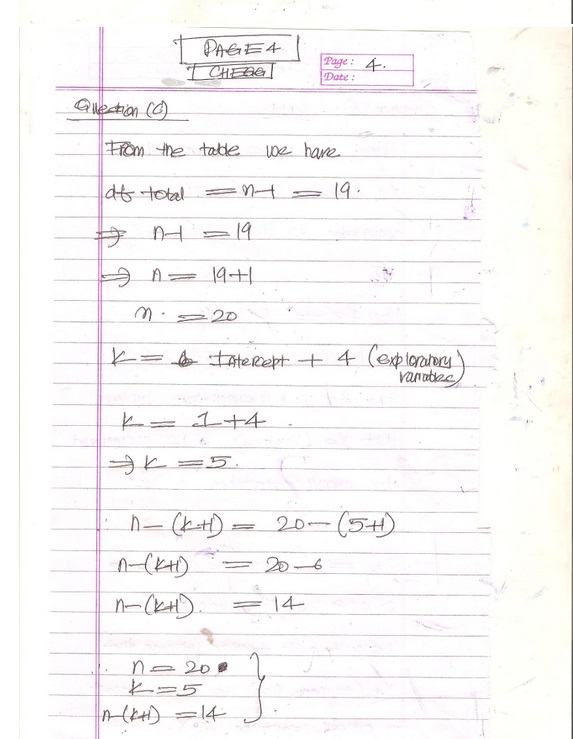 PAGE 4
CHEGG
Page: 4.
Date:
Question (C)
From the table we have
df total = n-1 = 19.
⇒ n-1 = 19
⇒ n = 19+1
n. = 20
K = Intercept + 4 (exploratory variables)
K = 1+4
⇒ K = 5.
n-(K+1) = 20-(5+1)
n-(K+1) = 20-6
n-(K+1). = 14
n = 20
K = 5
n-(K+1) = 14